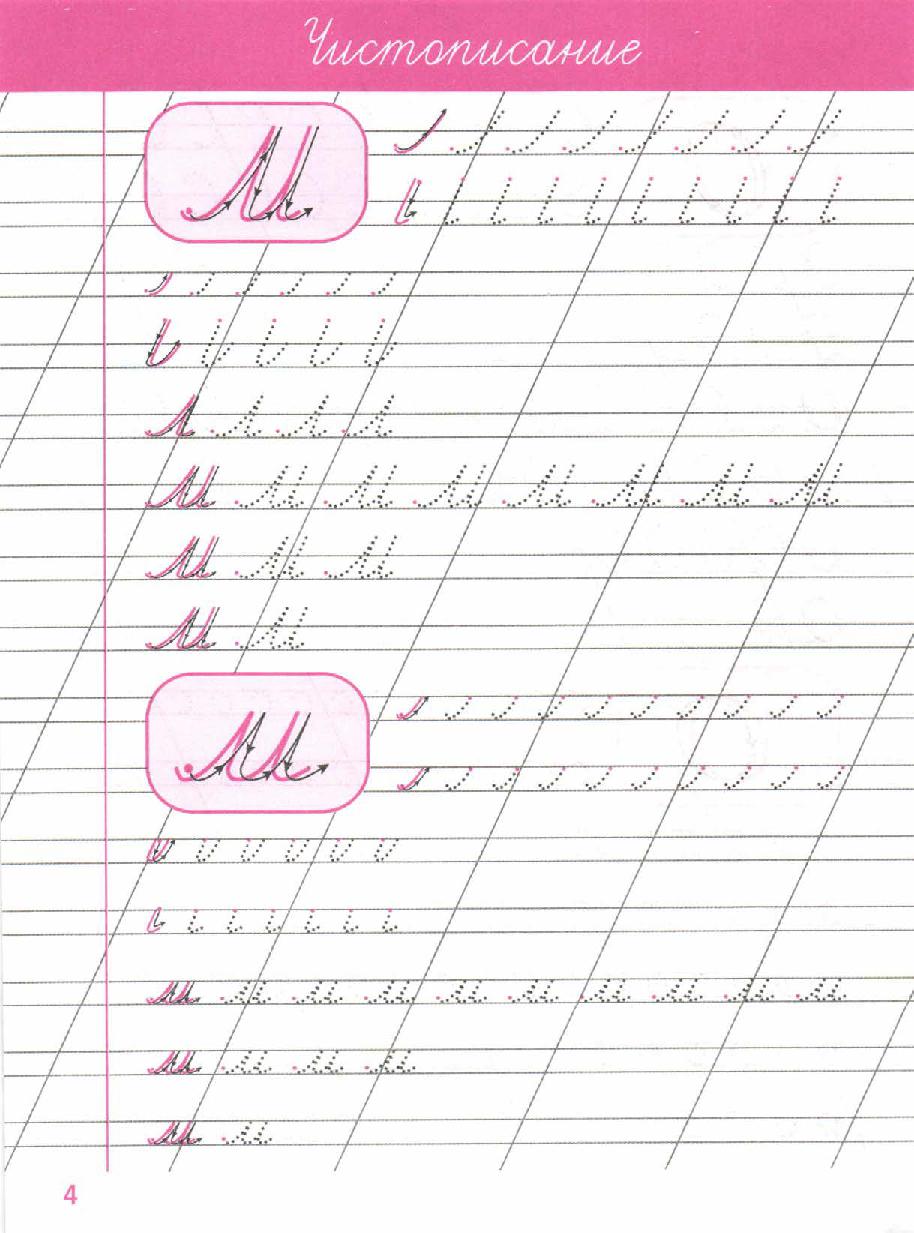 Чистописание
М
М М М М М М М М
М М М
М М
м
м м м м м м м м м м
м м м м
м м
4